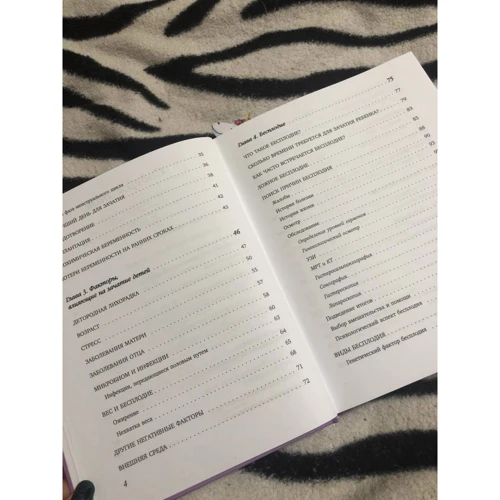 фаза менструального цикла
ДЕНЬ ДЛЯ ЗАЧАТИЯ
БИОХИМИЧЕСКАЯ БЕРЕМЕННОСТЬ
ПОТЕРИ БЕРЕМЕННОСТИ НА РАННИХ СРОКАХ
35
36
38
41
42
43
Глава 3. Факторы, 46
влияющие на зачатие детей
ДЕТОРОДНАЯ ЛИХОРАДКА
ВОЗРАСТ
СТРЕСС
ЗАБОЛЕВАНИЯ МАТЕРИ
ЗАБОЛЕВАНИЯ ОТЦА
МИКРОБИОМ И ИНФЕКЦИИ
Инфекции, передающиеся половым путем
ВЕС И БЕСПЛОДИЕ
Ожирение
Нехватка веса
ДРУГИЕ НЕГАТИВНЫЕ ФАКТОРЫ 71
ВНЕШНЯЯ СРЕДА 72
4
Глава 4. Бесплодие 75
ЧТО ТАКОЕ БЕСПЛОДИЕ? 77
СКОЛЬКО ВРЕМЕНИ ТРЕБУЕТСЯ ДЛЯ ЗАЧАТИЯ РЕБЕНКА? 79
КАК ЧАСТО ВСТРЕЧАЕТСЯ БЕСПЛОДИЕ?
ЛОЖНОЕ БЕСПЛОДИЕ
ПОИСК ПРИЧИН БЕСПЛОДИЯ
Жалобы
История болезни
История жизни
Осмотр
Обследование
Определение уровней гормонов
Гинекологический осмотр
УЗИ
МРТ и КТ
Гистеросальпингография
Сонография
Гистероскопия
Лапароскопия
Подведение итогов
Выбор вмешательства и помощи
Психологический аспект бесплодия
ВИДЫ БЕСПЛОДИЯ
Генетический фактор бесплодия